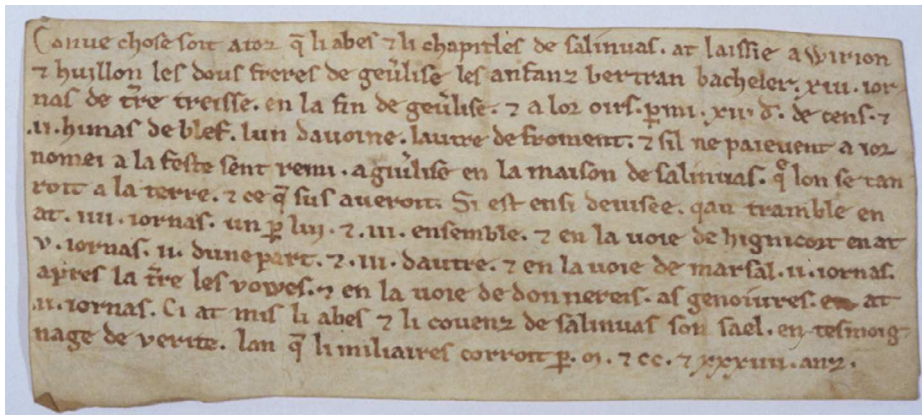 Conue chose soit a toz q̃ li abes ⁊ li chapitles de salinuas. at laissie a Wirion
⁊ huillon les dous freres de geũlise les anfanz bertran bacheler. xııı. ior
nas de t̃re treisse. en la fin de geũlise. ⁊ a lor oirs. ꝑmi. xıı d. de cens. ⁊
.ıı. himas de blef. lun dauoine. lautre de froment. ⁊ sil ne paieuent a ior
nomei a la feste sent remi. a giũlise en la maison de salinuas. q̃ lon se tan
roit a la terre. ⁊ ce q̃ sus aueroit. Si est ensi deuisee. qau tramble en
at. ıııı. iornas. un ꝑ lui. ⁊. ııı. ensemble. ⁊ en la uoie de hignicort en at
v. iornas. ıı. dune part. ⁊. ııı. dautre. ⁊ en la uoie de marsal. ıı. iornas.
apres la t̃re les vowes. ⁊ en la uoie de donnereis. as genoiures. at
.ıı. iornas. Ci at mis li abes ⁊ li couenz de salinuas son sael. en tesmoig
nage de verite. lan q̃ li miliaires corroit ꝑ. m. ⁊ cc. ⁊ xxxıııı. anz.